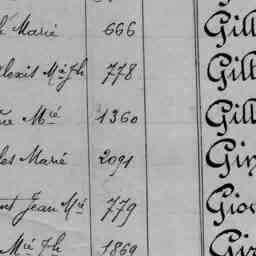 Marie 666 Gill
Alexis Mie Jh 778 Gill
Mie 1360 Gill
les Marie 2091 Gin
nt Jean Mie 779 Gio
Mie Jh 1869 Gir